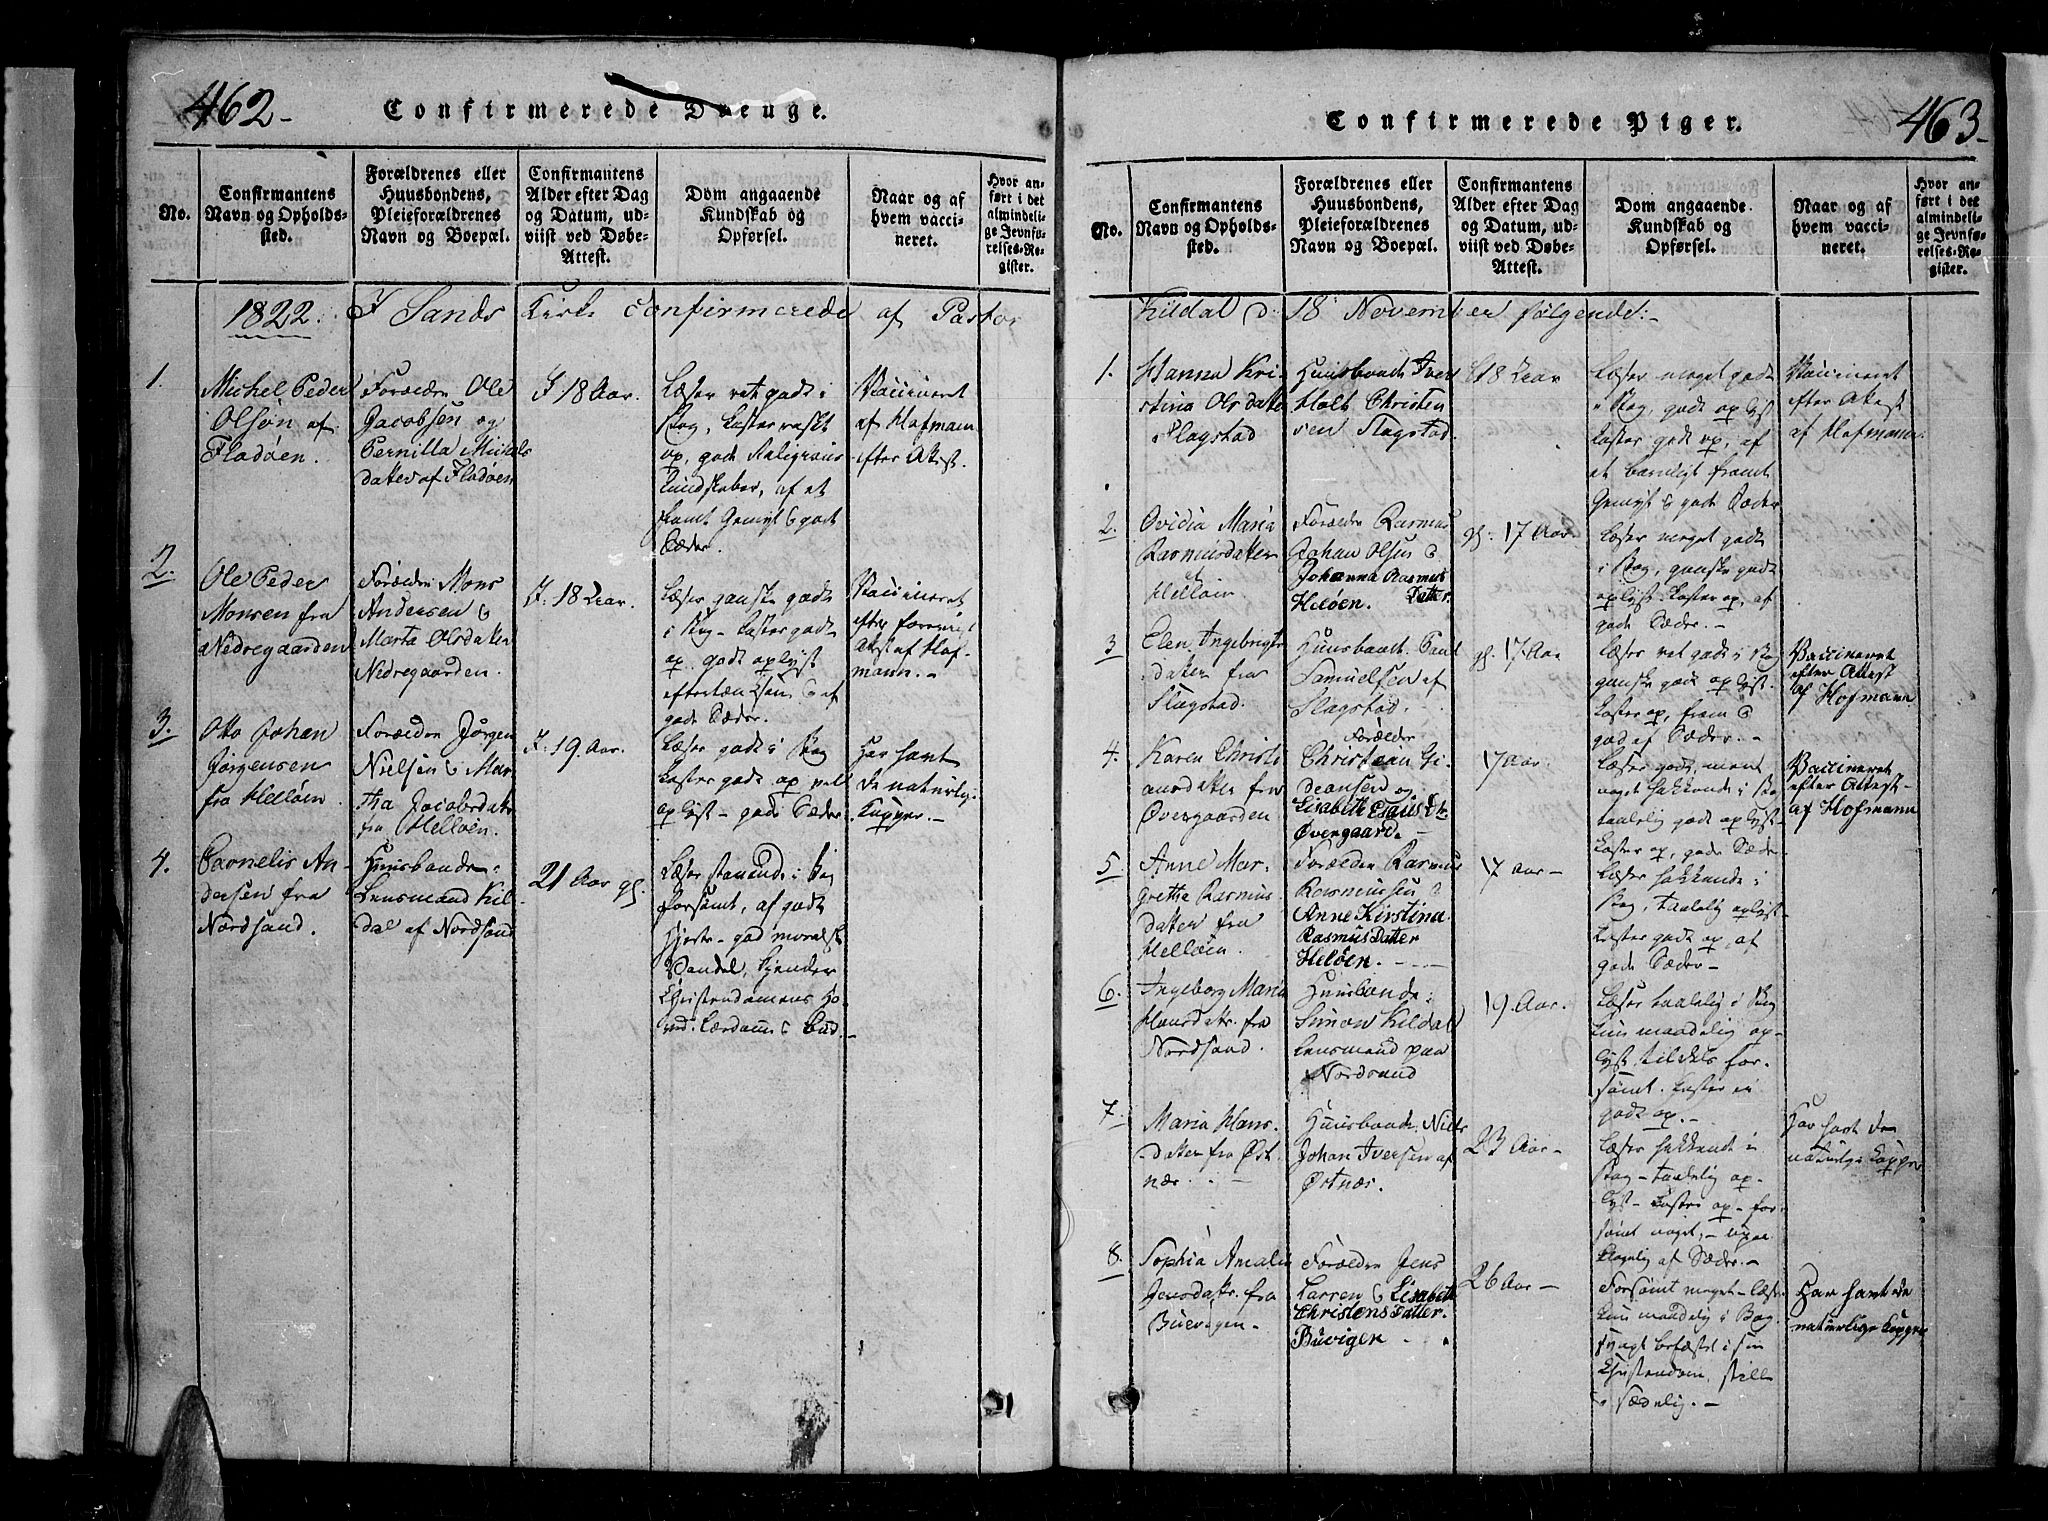 462-
Confirmerede Drenge.
No.
Confirmantens
Navn og Opholds-
sted.
Forældrenes eller
Huusbondens,
Pleieforældrenes
Navn og Boepæl.
Confirmantens
Alder efter Dag
og Datum, ud-
viist ved Døbe-
Attest.
Dom angaaende
Kundskab og
Opførsel.
Naar og af
hvem vacci-
neret.
Hvor an-
ført i det
almindeli-
ge Jevnfø-
relses-Re-
gister.
1822. I Sands Kirke confirmerede af Pastor
1.
Michel Peder
Olsøn af
Fladøen.
Forældre Ole
Jacobsen og
Pernilla Michels
datter af Fladøen
18 Aar.
Læser ret godt i
Bog, kaster raskt
op, gode Religions
kundskaber, af et
Gemyt & gode
Sæder.
Vaccineret
af Hofmann
efter Attest.
2.
Ole Peder
Monsen fra
Nedregaarden
Forældre Mons
Andersen &
Marta Olsdatter
Nedregaarden.
18 Aar.
Læser ganske godt
i Bog - kaster godt
op. godt oplyst
& af
gode Sæder.
Vaccineret
efter
Attest af Hof-
mann. -
3.
Otto Johan
Jørgensen
fra Helløen.
Forældre Jørgen
Nielsen & Mar
tha Jacobsdatter
fra Helløen.
19. Aar.
Læser godt i Bog
kaster godt op vel
oplyst - gode Sæder
Har havt
de naturlige
Kopper. -
4.
Cornelis An-
dersen fra
Nordsand.
Huusbonde:
Lensmand Kil-
dal af Nordsand
21 Aar gl.
Læser i Bog
forsømt, af godt
Hjerte - god moralsk
Vandel, kjender
Christendommens Ho-
ved. Lærdom & Bud. -
463-
Confirmerede Piger.
No.
Confirmantens
Navn og Opholds-
sted.
Forældrenes eller
Huusbondens,
Pleieforældrenes
Navn og Boepæl.
Confirmantens
Alder efter Dag
og Datum, ud-
viist ved Døbe-
Attest.
Dom angaaende
Kundskab og
Opførsel.
Naar og af
hvem vacci-
neret.
Hvor an-
ført i det
almindeli-
ge Jevnfø-
relses-Re-
gister.
Kildal d: 18 November følgende: -
1.
Hanna Kri-
stina Olsdatter
Slagstad
Huusbonde Iver
Holt Christen
sen Slagstad.
18 Aar
Læser meget godt
i Bog, godt oplyst
kaster godt op, af
et barnligt fromt
Gemyt & gode Sæder
Vaccineret
efter Attest
af Hofmann.
2.
Ovidia Maria
Rasmusdatter
Helløen
Forældre Rasmus
Johan Olsen &
Johanna Rasmus
Heløen. Datter.
gl: 17 Aar
Læser meget godt
i Bog, ganske godt
oplyst. kaster op, af
gode Sæder. -
3
Elen Ingebrigts
datter fra
Slagstad.
Huusbonde. Paul
Samuelsen af
Slagstad.
gl. 17 Aar
Læser ret godt i Bog
ganske godt oplyst.
kaster op, from &
god af Sæder. -
Vaccineret
efter Attest
af Hofmann
4.
Karen Christi
ansdatter fra
Øvergaarden
Forælder
Christian Gi-
deonsen og
Lisabeth Esaus Dtr.
Øvergaarde -
17 Aar.
Læser godt, ment
noget hakkende i Bog
taalelig godt oplyst
kaster op, gode Sæder
Vaccineret
efter Attest -
af Hofmann
5.
Anne Mar-
grethe Rasmus
datter fra
Helløen.
Forældre Rasmus
Rasmussen &
Anne Kirstina
RasmusDatter
Heløen. - - -
17 Aar -
Læser hakkende i
Bog, taalelig oplyst
kaster godt op, af
gode Sæder -
6.
Ingeborg Maria
Hansdatr. fra
Nordsand.
Huusbonde:
Simon Kildal
Lensmand paa
Nordsand
19 Aar.
Læser taalelig i Bog
kun maadelig op-
lyst, tildels for-
sømt. kaster ei
godt op. -
7.
Maria Hans-
datter fra Øst-
næs. -
Huusbonde. Niels
Johan Iversen af
Østnæs.
23 Aar -
Læser hakkende i
Bog - taalelig op-
lyst - kaster op - for-
sømt noget, -
af Sæder. -
Har havt de
naturlige Kopper
8.
Sophia Amalia
Jensdatr. fra
Buevigen -
Forældre Jens
Larsen & Lisabeth
Christens Datter.
Buvigen - .
26 Aar -
Forsømt meget - læser
kun maadelig i Bog
svagt befæstet i sin
Christendom, stille
& sædelig. -
Har havt de
naturlige Kopper